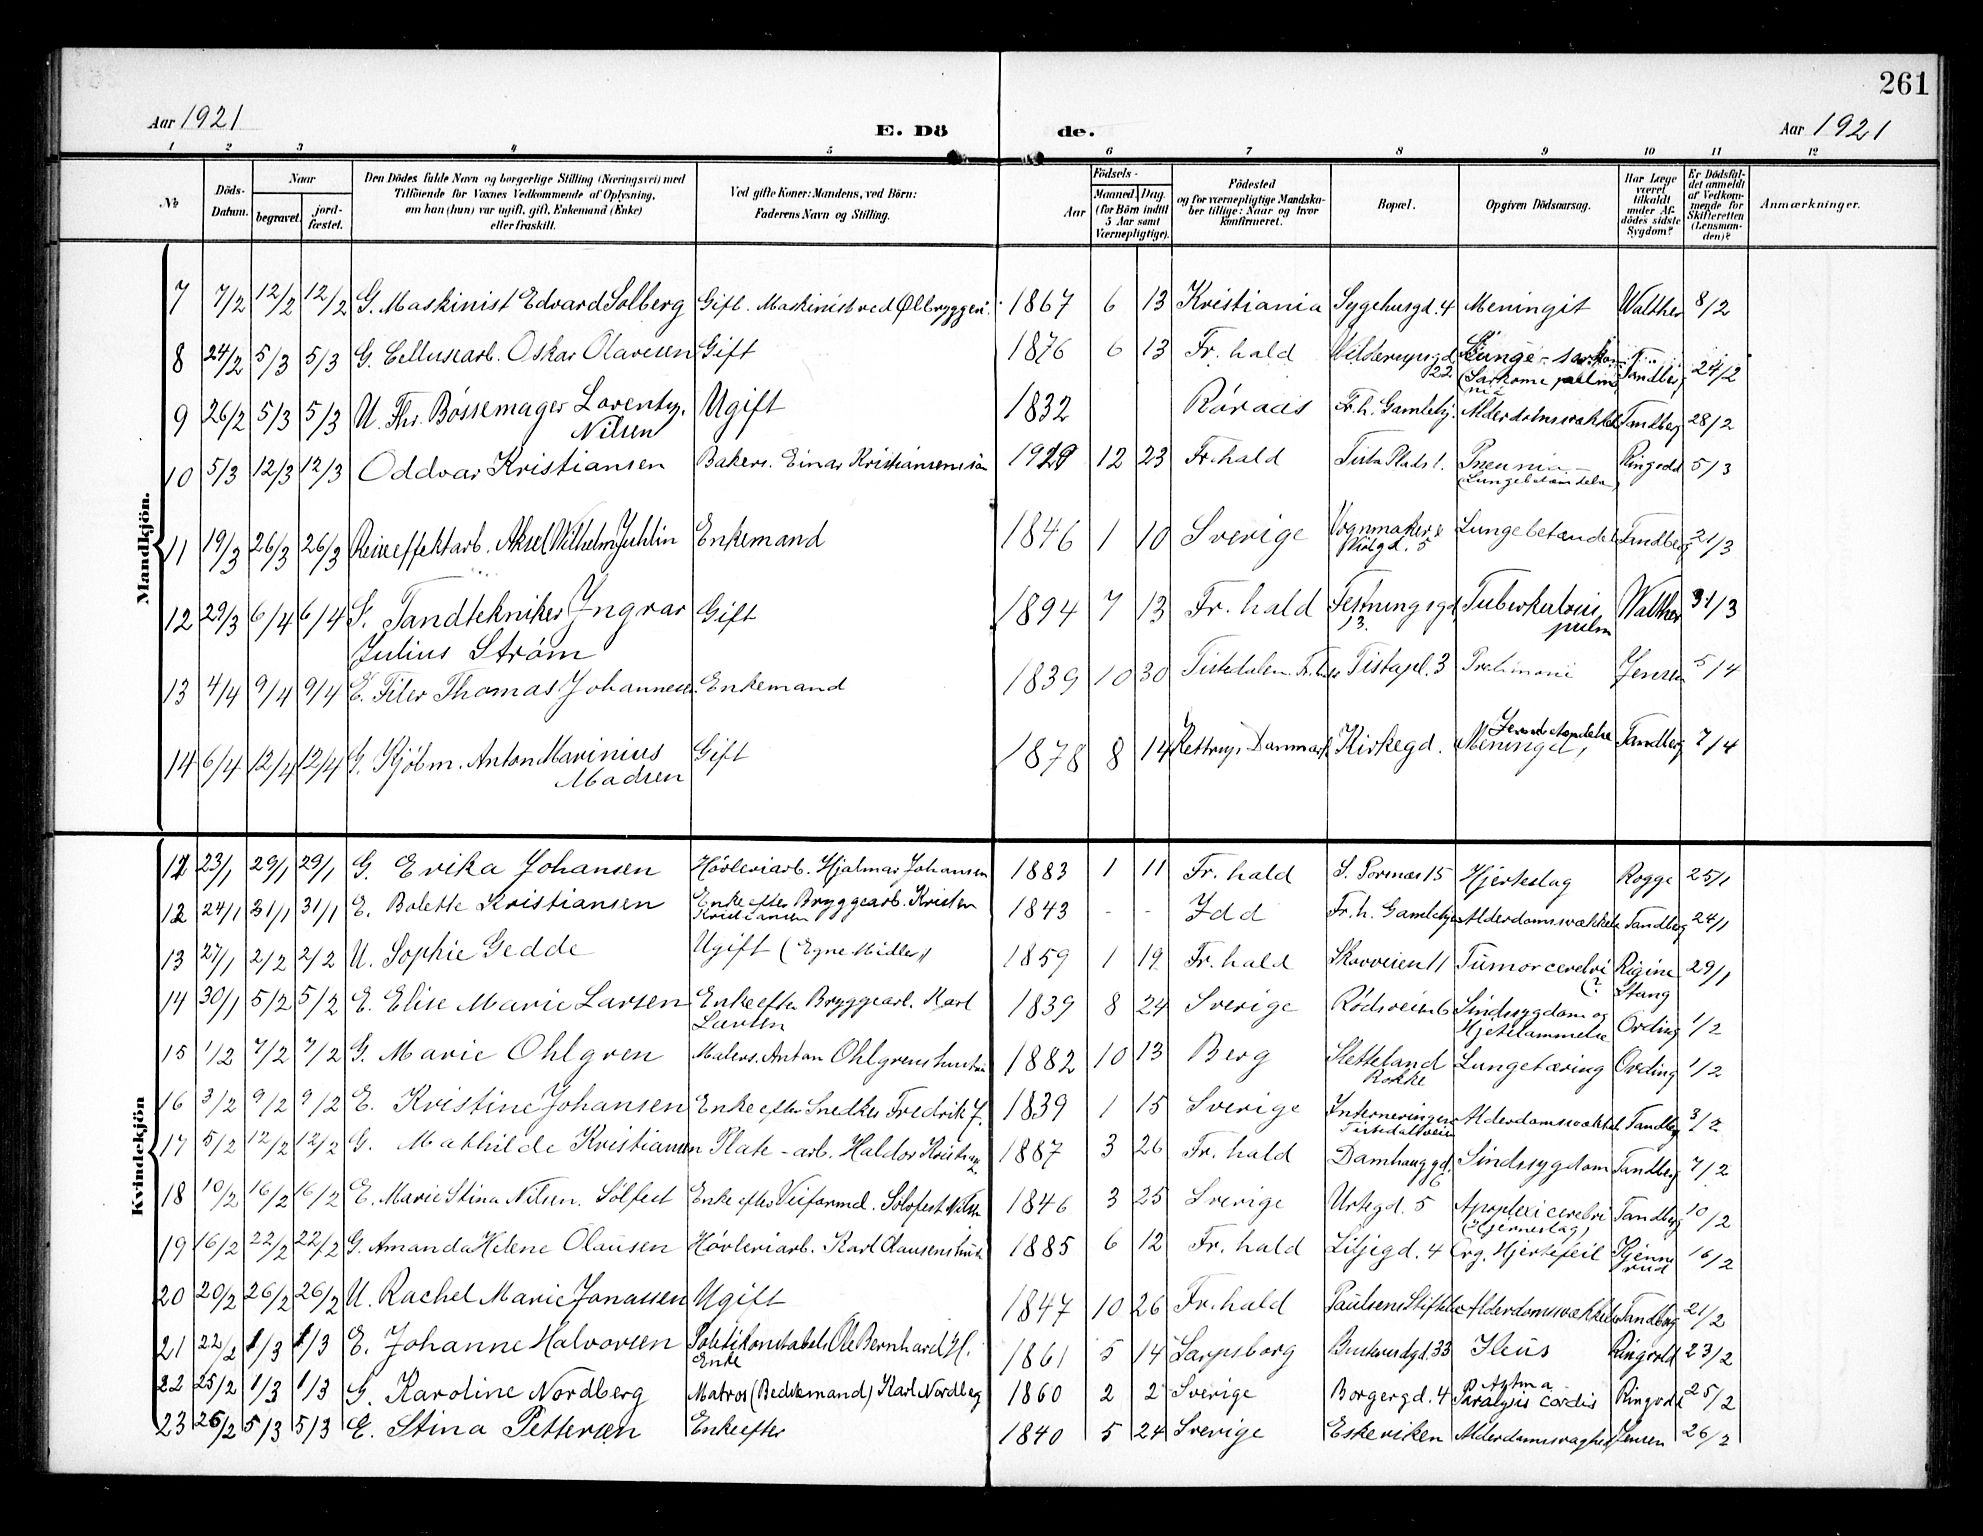 261
Aar 1921
E. Dö
de.
Aar 1921
1 2 3 4 5 6 7 8 9 10 11 12
№
Döds-
Datum.
Naar
begravet.
jord-
fæstet.
Den Dödes fulde Navn og borgerlige Stilling (Næringsvei) med
Tilföiende for Voxnes Vedkommende af Oplysning,
om han (hun) var ugift, gift, Enkemand (Enke)
eller fraskilt.
Ved gifte Koner: Mandens, ved Börn:
Faderens Navn og Stilling.
Födsels-
Aar
Maaned. Dag.
(for Börn indtil
5 Aar samt
Værnepligtige).
Födested
og for værnepligtige Mandska-
ber tillige: Naar og hvor
konfirmeret.
Bopæl.
Opgiven Dödsaarsag.
Har Læge
været
tilkaldt
under Af-
dödes sidste
Sygdom?
Er Dödsfal-
det anmeldt
af Vedkom-
mende for
Skifteretten
(Lensman-
den)?
Anmærkninger.
Mandkjön.
7 7/2 12/2 12/2 G. Maskinist Edvard Solberg Gift. Maskinist ved Ølbryggeri. 1867 6 13 Kristiania Sygehusgd. 4 Meningit Walther 8/2
8 24/2 5/3 5/3 G. Cellusearb. Oskar Olavesen Gift 1876 6 13 Fr. hald 22 Lunge-
Tandberg 24/2
9 26/2 5/3 5/3 U. Fhr. Bössemager Lorentz. Ugift 1832 Röraas Fr. h. Gamlehj. Tandberg 28/2
Nilsen
10 5/3 12/3 12/3 Oddvar Kristiansen Bakers. Einar Kristiansens sön 12 23 Fr.hald Tista Plads 1. Ringvold 5/3
(Lungebetændelse)
11 19/3 26/3 26/3 Aksel Wilhelm Juhlin Enkemand 1846 1 10 Sverige Vognmaker Lungebetændel Tandberg 21/3
5
12 29/3 6/4 6/4 Tandtekniker Yngvar Gift 1894 7 13 Fr. hald Festningsgd Tuberkulosis Walther 31/3
13. pulm
Julius Ström
13 4/4 9/4 9/4 E. Filer Thomas Johannesen. Enkemand 1839 10 30 Tistedalen. Tistapl. 3 Jensen 5/4
14 6/4 12/4 12/4 G. Kjöbm. Anton Marinius Gift 1878 8 14 Danmark Kirkegd. Tandberg 7/4
Madsen
Kvindekjön
11 23/1 29/1 29/1 G. Erika Johansen Hövleriarb. Hjalmar Johansen 1883 1 11 Fr. hald 15 Hjerteslag Rogge 25/1
12 24/1 31/1 31/1 E. Bolette Kristiansen Enke efter Bryggearb. Kristen 1843 - - Idd Fr. h. Gamlehj. Alderdomssvækkels Tandberg 24/1
Kristiansen
13 27/1 2/2 2/2 U. Sophie Gedde Ugift (Egne Midler) 1859 1 19 Fr. hald Skovveien 11 Tumor cerebri Rigine 29/1
(? Stang
14 30/1 5/2 5/2 E. Elise Marie Larsen Enke efter Bryggearb. Karl 1839 8 24 Sverige Rödsveien 6 Sindssygdom og Ording 1/2
Larsen Hjertelammelse
15 1/2 7/2 7/2 G. Marie Ohlgren Malers. Anton Ohlgrens hustru 1882 10 13 Berg Sletteland Lungetæring Ording 1/2
Rokke
16 3/2 9/2 9/2 E. Kristine Johansen Enke efter Snedker Fredrik J. 1839 1 15 Sverige Interneringen Alderdomssvækkel Tandberg 3/2
Tistedalsveien
17 5/2 12/2 12/2 G. Mathilde Kristiansen Plate-arb. Haldor Kristian 1887 3 26 Fr. hald Damhauggd. Sindssygdom Tandberg 7/2
6
18 10/2 16/2 16/2 E. Marie Stina Nilsen. Sölfest Enke efter Veiformd. Solofest Nilsen 1846 3 25 Sverige Urtegd. 5 Apoplexi cerebri Tandberg 10/2
(Hjerneslag)
19 16/2 22/2 22/2 G. Amanda Helene Olausen Hövleriarb. Karl Olausens hust 1885 6 12 Fr. hald Liljegd. 4 Org. Hjertefeil Kjenne 16/2
rud
20 20/2 26/2 26/2 U. Rachel Marie Jonassen Ugift 1847 10 26 Fr.hald Paulsens Stiftelse Alderdomssvækkels Tandberg 21/2
21 22/2 1/3 1/3 E. Johanne Halvorsen Politikonstabel Ole Bernhard H. 1861 5 14 Sarpsborg 33 Ileus Ringvold 23/2
Enke
22 25/2 1/3 1/3 G. Karoline Nordberg Matros (Bedekmand) Karl Nordberg 1860 2 2 Sverige Borgergd. 4 Astma Ringvold 25/2
Paralysis cordis
23 26/2 5/3 5/3 E. Stina Pettersen Enke efter 1840 5 24 Sverige Eskeviken Alderdomssvaghed Jensen 26/2